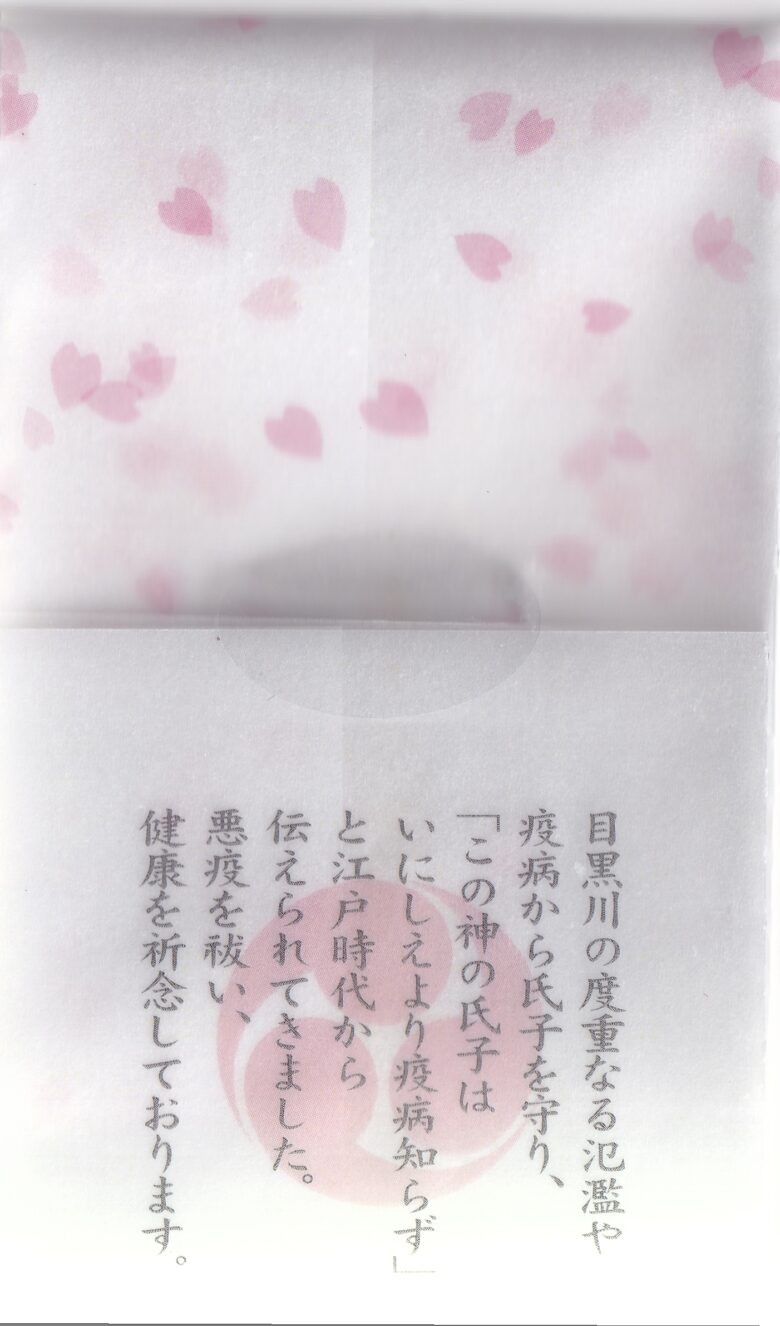 目黒川の度重なる氾濫や
疫病から氏子を守り、
「この神の氏子は
いにしえより疫病知らず」
と江戸時代から
伝えられてきました。
悪疫を祓い、
健康を祈念しております。